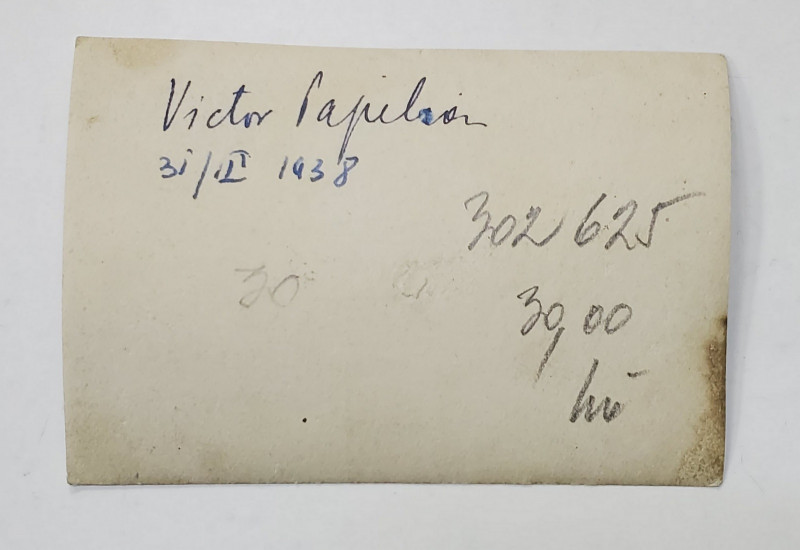 Victor Papilian
31/III 1938
302 625
30,00
30